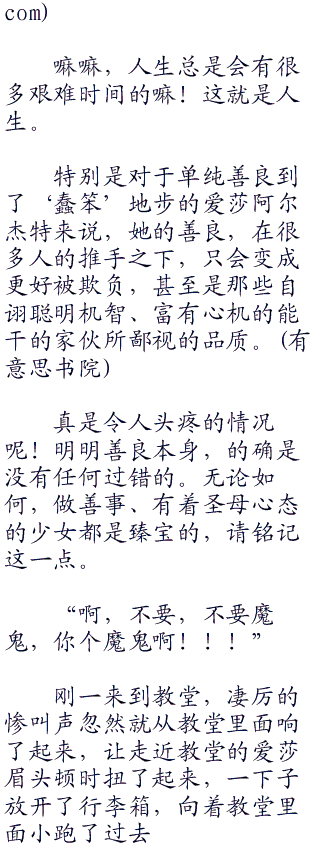 com)
嘛嘛，人生总是会有很
多艰难时间的嘛！这就是人
生。
特别是对于单纯善良到
了‘蠢笨’地步的爱莎阿尔
杰特来说，她的善良，在很
多人的推手之下，只会变成
更好被欺负，甚至是那些自
诩聪明机智、富有心机的能
干的家伙所鄙视的品质。(有
意思书院)
真是令人头疼的情况
呢！明明善良本身，的确是
没有任何过错的。无论如
何，做善事、有着圣母心态
的少女都是臻宝的，请铭记
这一点。
“啊，不要，不要魔
鬼，你个魔鬼啊！！！”
刚一来到教堂，凄厉的
惨叫声忽然就从教堂里面响
了起来，让走近教堂的爱莎
眉头顿时扭了起来，一下子
放开了行李箱，向着教堂里
面小跑了过去